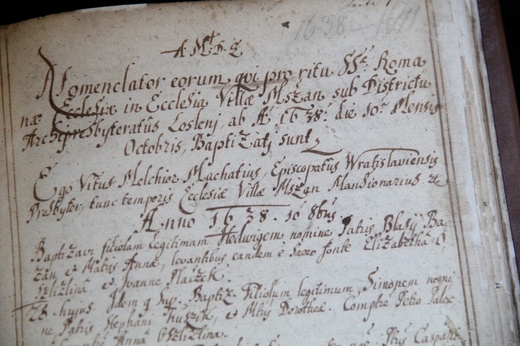 1638-
A. M. D. G.
Nomenclator eorum, qvi pro ritu SSæ Roma
næ Ecclesiæ in Ecclesia Villæ Mszan sub Districtu
Archipresbyteratus Loslenj ab Aº 1638: die 10ª Mensis
Octobris, Baptizatj sunt
Ego Vitus Melchior Machatius, Episcopatus Wratislaviensis
Presbyter tunc temporis Ecclesiæ Villæ Mszan Mansionarius etc
Anno 1638. 10 8bris
Baptizavi filiolam legitimam Hedwigem nomine Patris Blasÿ Ba
zan, et Matris Annæ, levantibus eandem è sacro fonte Elizabetha
et Joanne Placzek.
hujus. Idem q sup. Baptiz. Filiolum legitimum, Simonem nomi
ne Patris Stephani et Mris Dorotheæ. Compre Petro
Anna